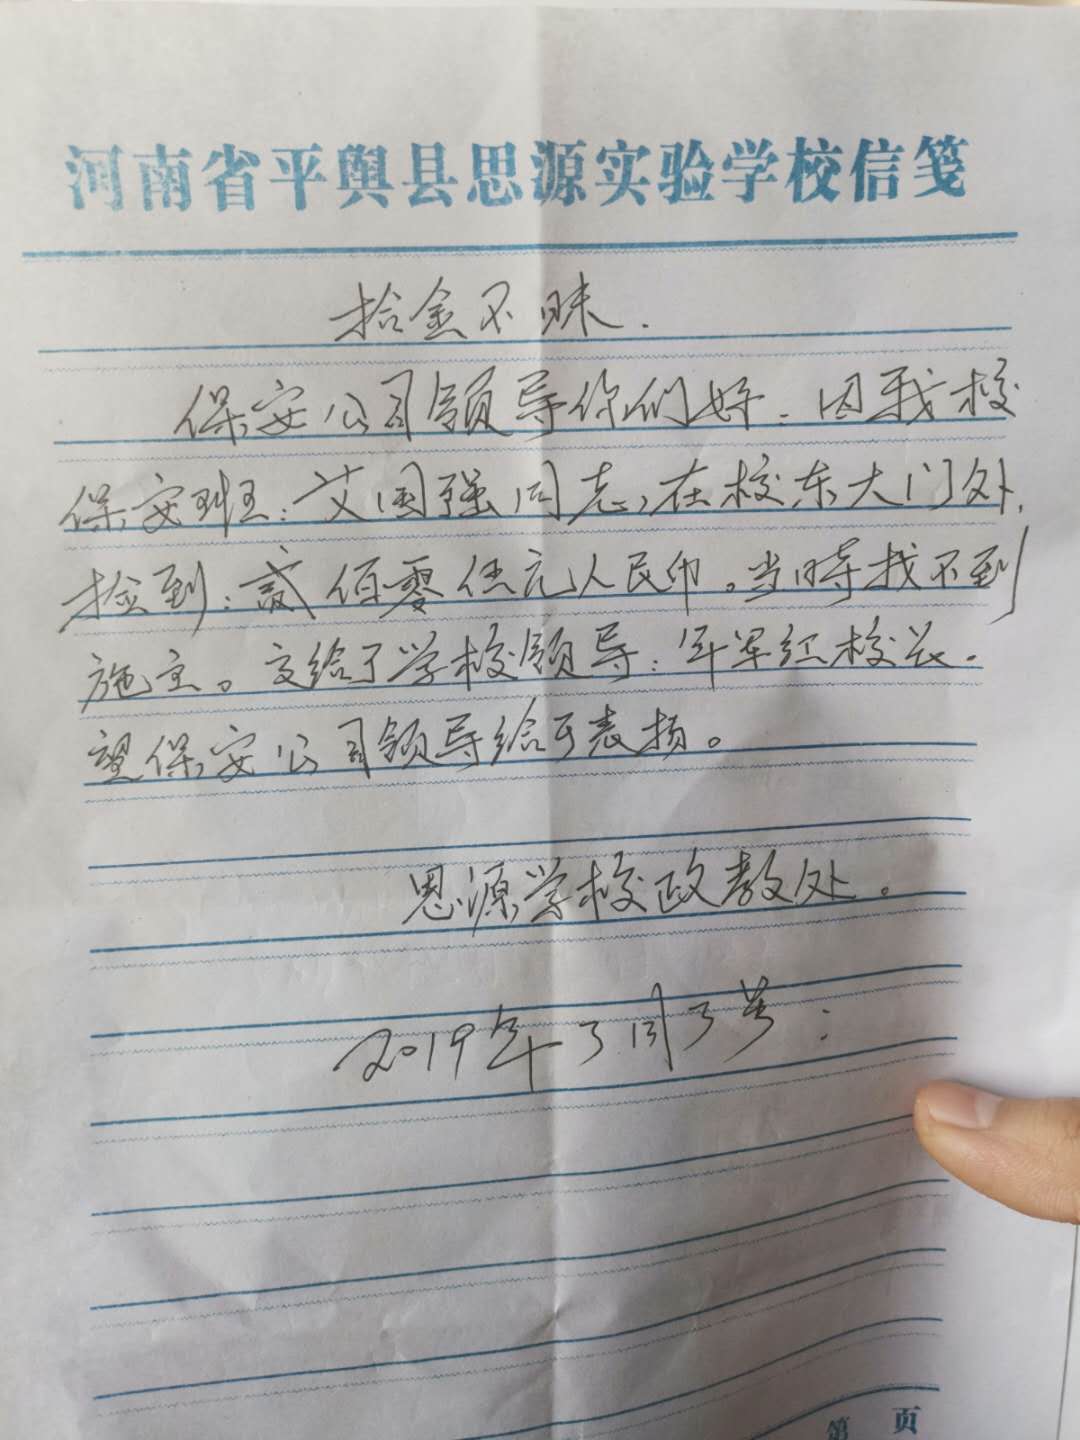 河南省平舆县思源实验学校信笺
拾金不昧.
保安公司领导你们好：因我校
保安班：艾国强同志,在校东大门处,
捡到：贰佰零伍元人民币。当时找不到
施主。交给了学校领导：军红校长.
望保安公司领导给予表扬。
思源学校政教处。
2019年3月3号：
第 页